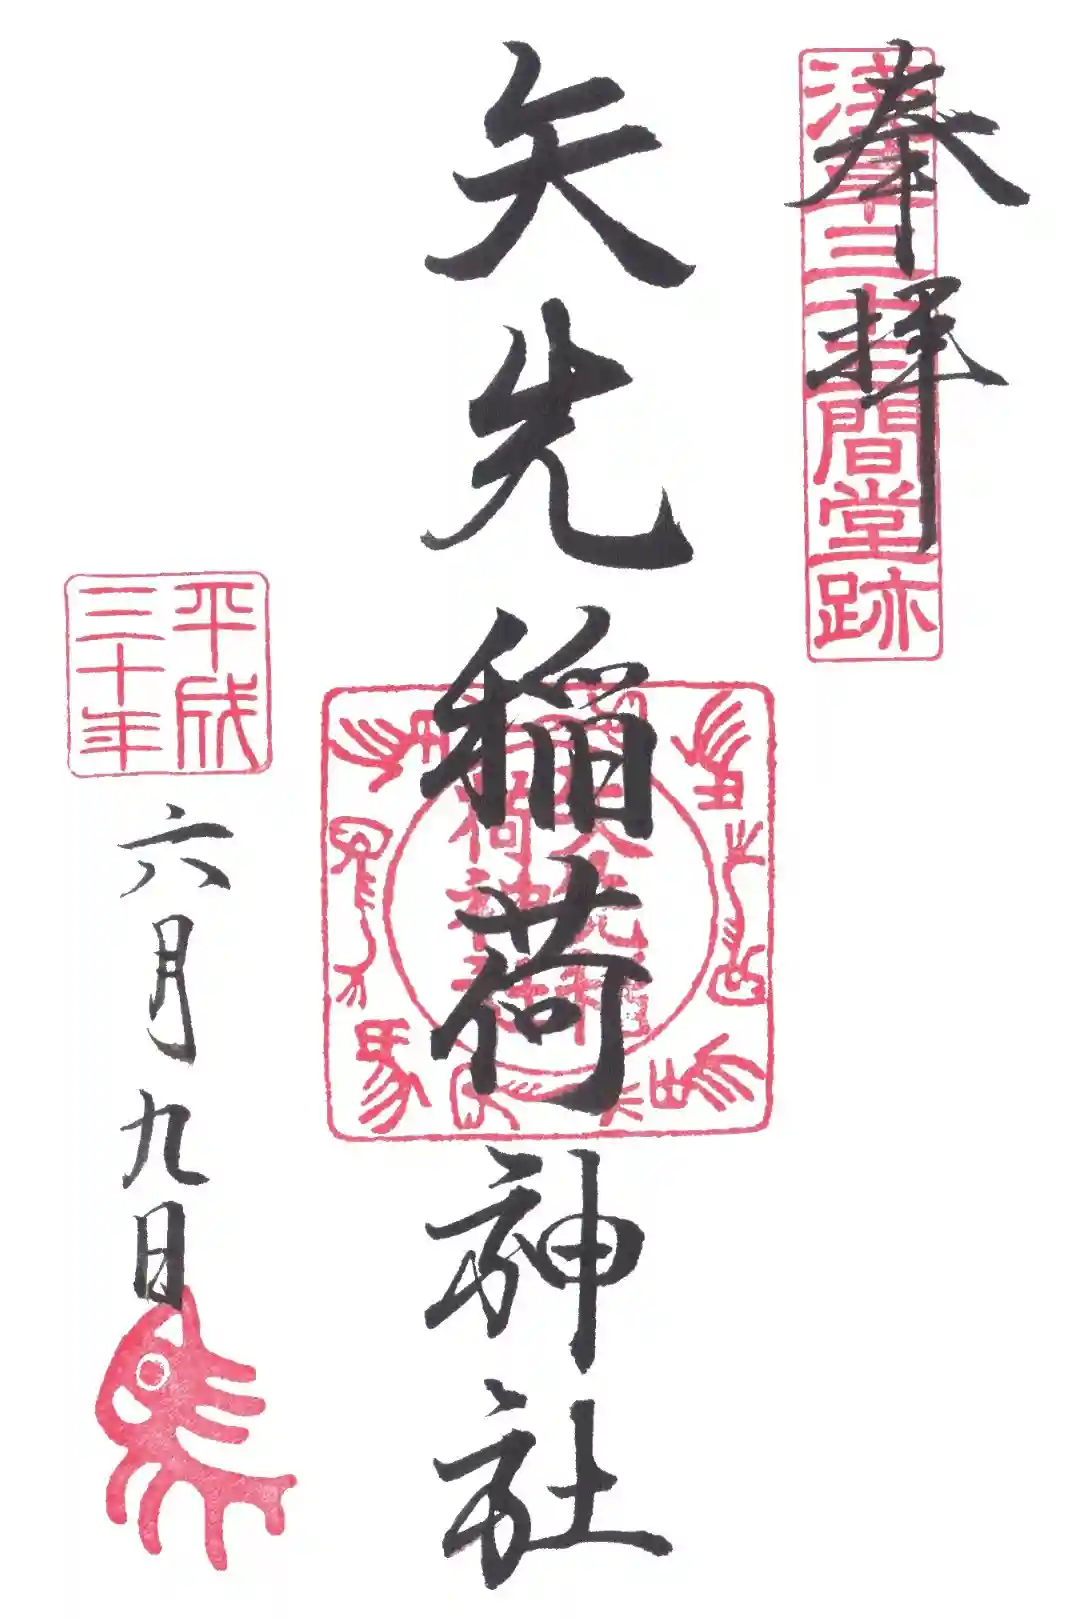 奉拝
浅草三十三間堂跡
矢先稲荷神社
矢先稲荷神社
馬
平成三十年
六月九日